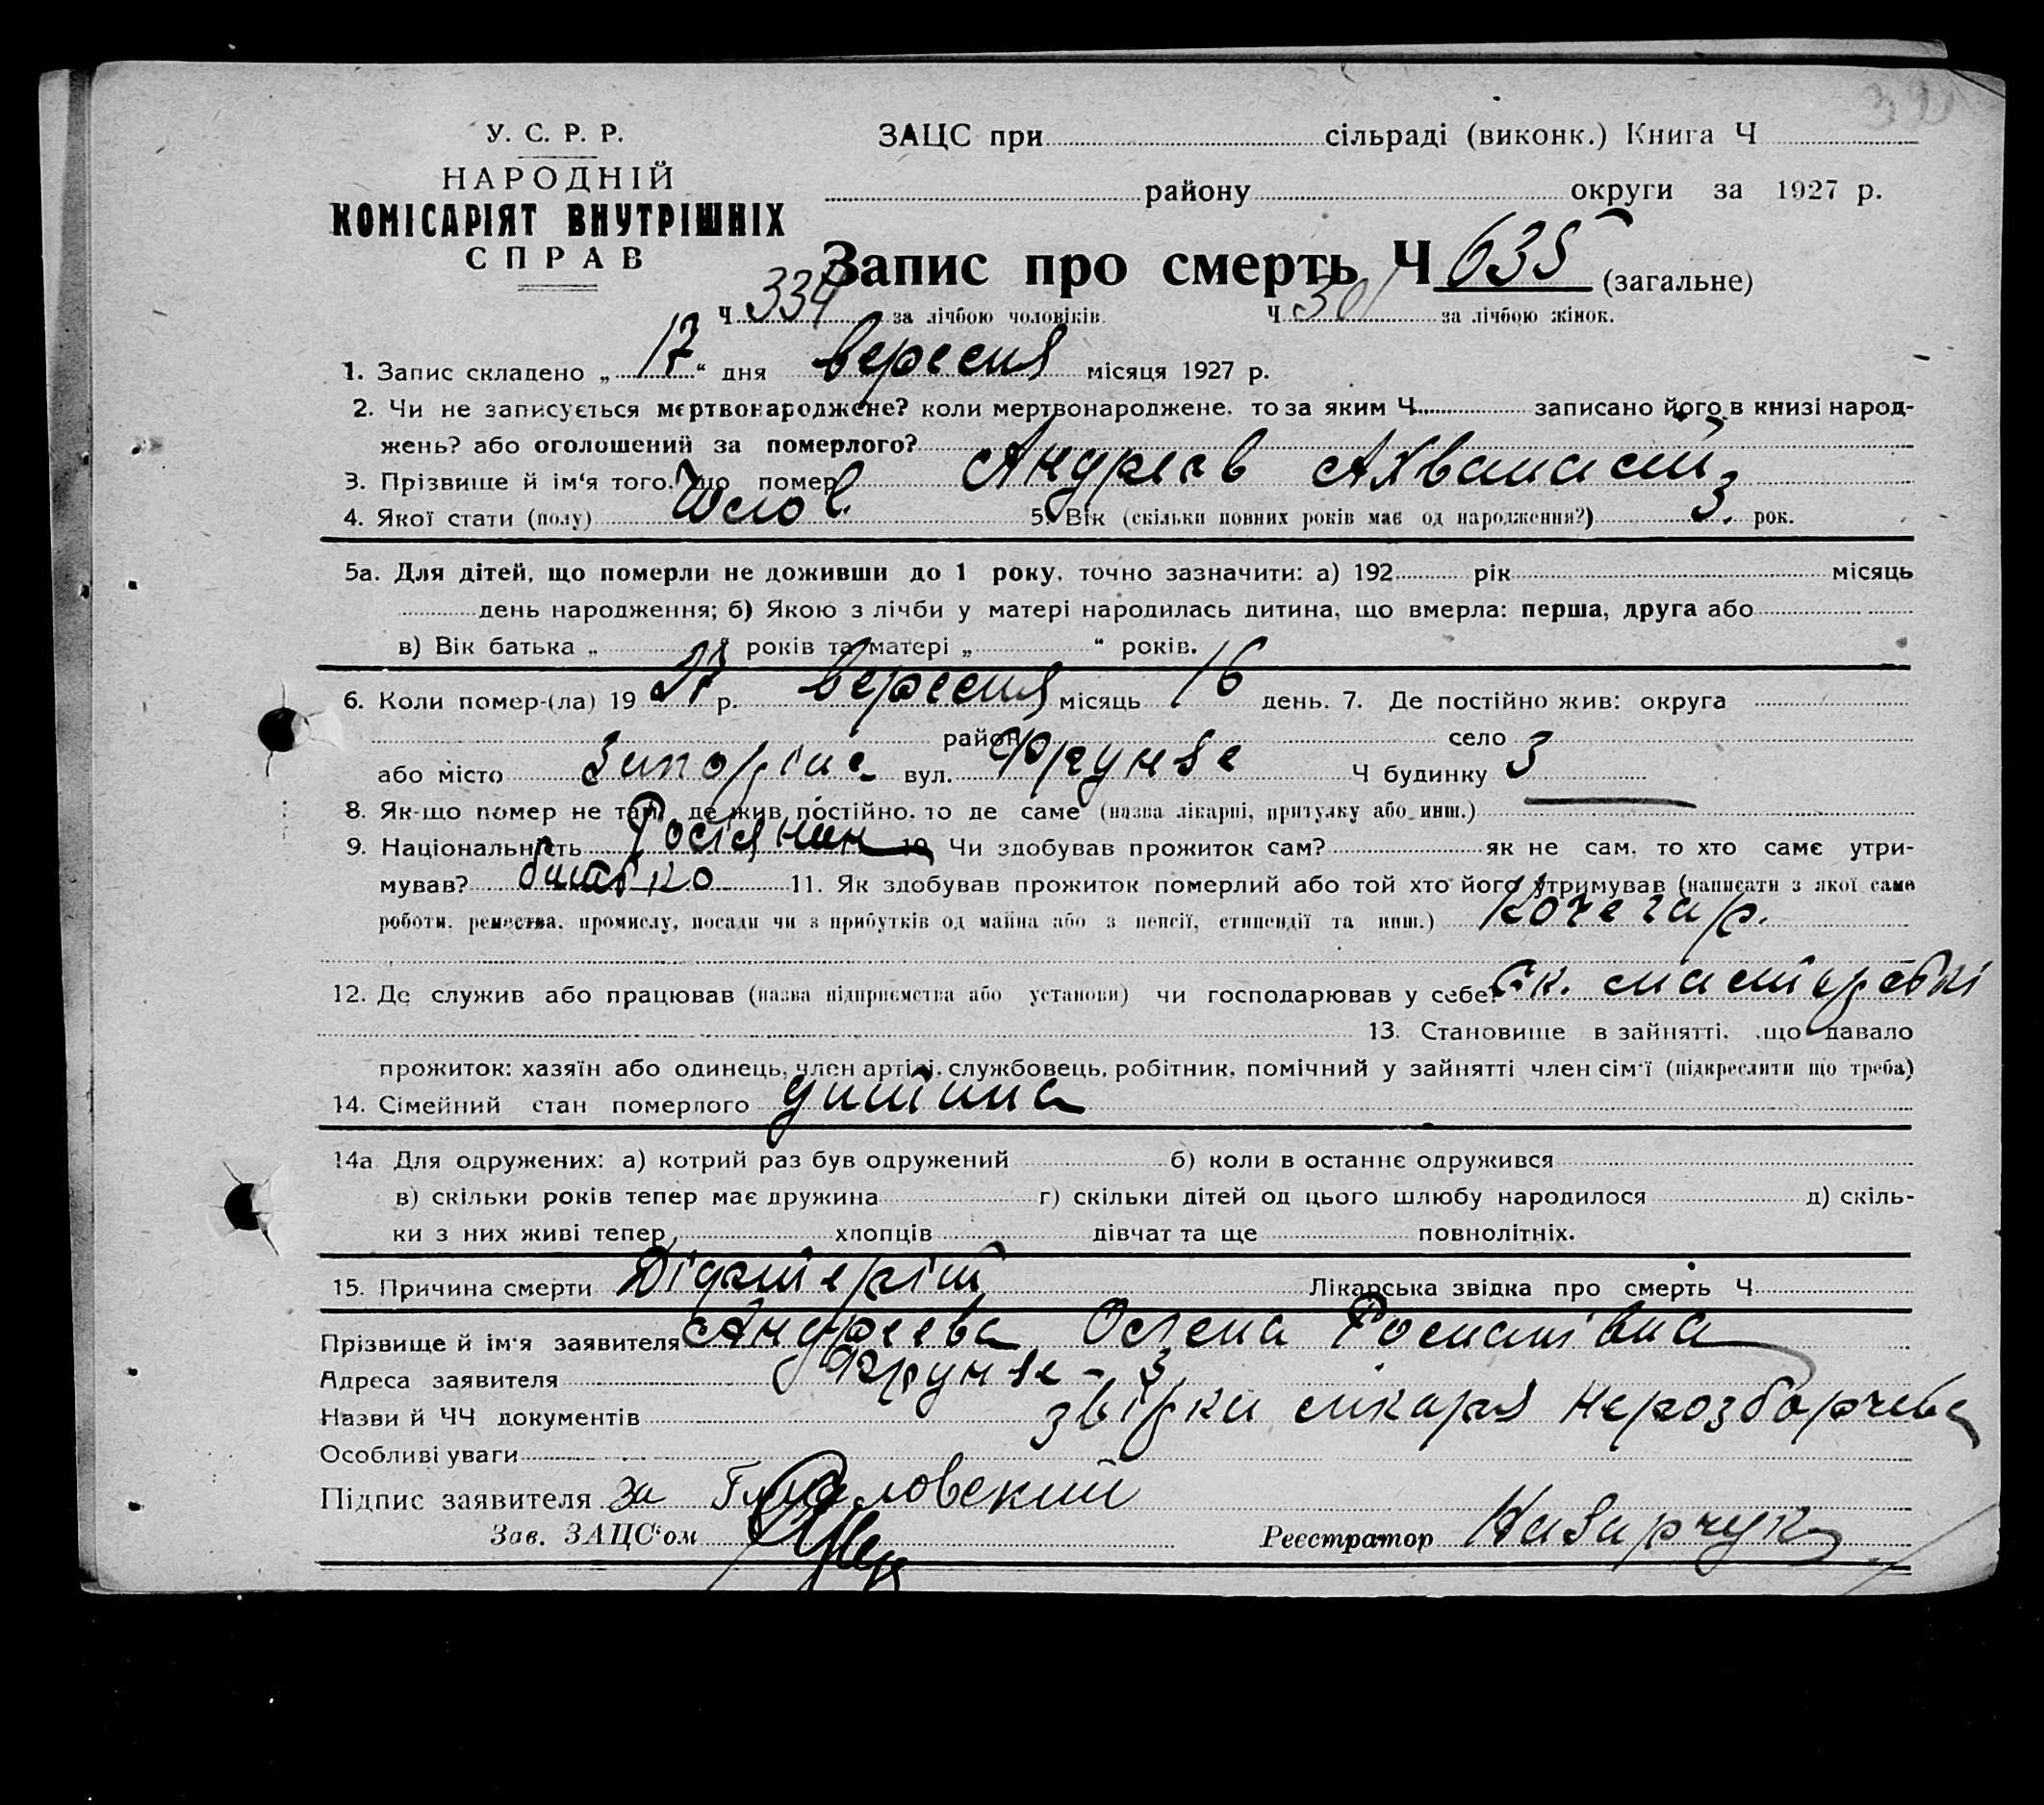 У. С. Р. Р.
НАРОДНІЙ
КОМІСАРІЯТ ВНУТРІШНІХ
СПРАВ
ЗАЦС при сільраді (виконк.) Книга Ч
району округи за 1927 р.
Запис про смерть Ч 635 (загальне)
Ч 334 за лічбою чоловіків. Ч 301 за лічбою жінок.
1. Запис складено „ 17 “ дня вересня місяця 1927 р.
2. Чи не записується мертвонароджене? коли мертвонароджене, то за яким Ч записано його в книзі народ-
жень? або оголошений за померлого?
3. Прізвище й ім'я того, що помер Андреєв
4. Якої стати (полу) чолов. 5. Вік (скільки повних років має од народження?) 3 рок.
5а. Для дітей, що померли не доживши до 1 року, точно зазначити: а) 192 рік місяць
день народження; б) Якою з лічби у матері народилась дитина, що вмерла: перша, друга або
в) Вік батька „ “ років та матері „ “ років.
6. Коли помер-(ла) 19 27 р. вересня місяць 16 день. 7. Де постійно жив: округа
район село
або місто Запоріжжя вул. Фрунзе Ч будинку 3
8. Як-що помер не там, де жив постійно, то де саме (назва лікарні, притулку або инш.)
9. Національність Росіянин 10. Чи здобував прожиток сам? як не сам, то хто саме утри-
мував? батько 11. Як здобував прожиток померлий або той хто його утримував (написати з якої саме
роботи, ремества, промислу, посади чи з прибутків од майна або з пенсії, стипендії та инш.) Кочегар.
12. Де служив або працював (назва підприємства або установи) чи господарював у себе? майстерські
13. Становище в зайнятті, що давало
прожиток: хазяїн або одинець, член артілі, службовець, робітник, помічний у зайнятті член сім'ї (підкреслити що треба)
14. Сімейний стан померлого дитина
14а Для одружених: а) котрий раз був одружений б) коли в останнє одружився
в) скільки років тепер має дружина г) скільки дітей од цього шлюбу народилося д) скіль-
ки з них живі тепер, хлопців дівчат та ще повнолітніх.
15. Причина смерти Діфтеріт Лікарська звідка про смерть Ч
Прізвище й ім'я заявителя Андреева Олена Романівна
Адреса заявителя Фрунзе - 3
Назви й ЧЧ документів звідки лікаря нерозборчева
Особливі уваги
Підпис заявителя За
Зав. ЗАЦС'ом Реєстратор Назарчук